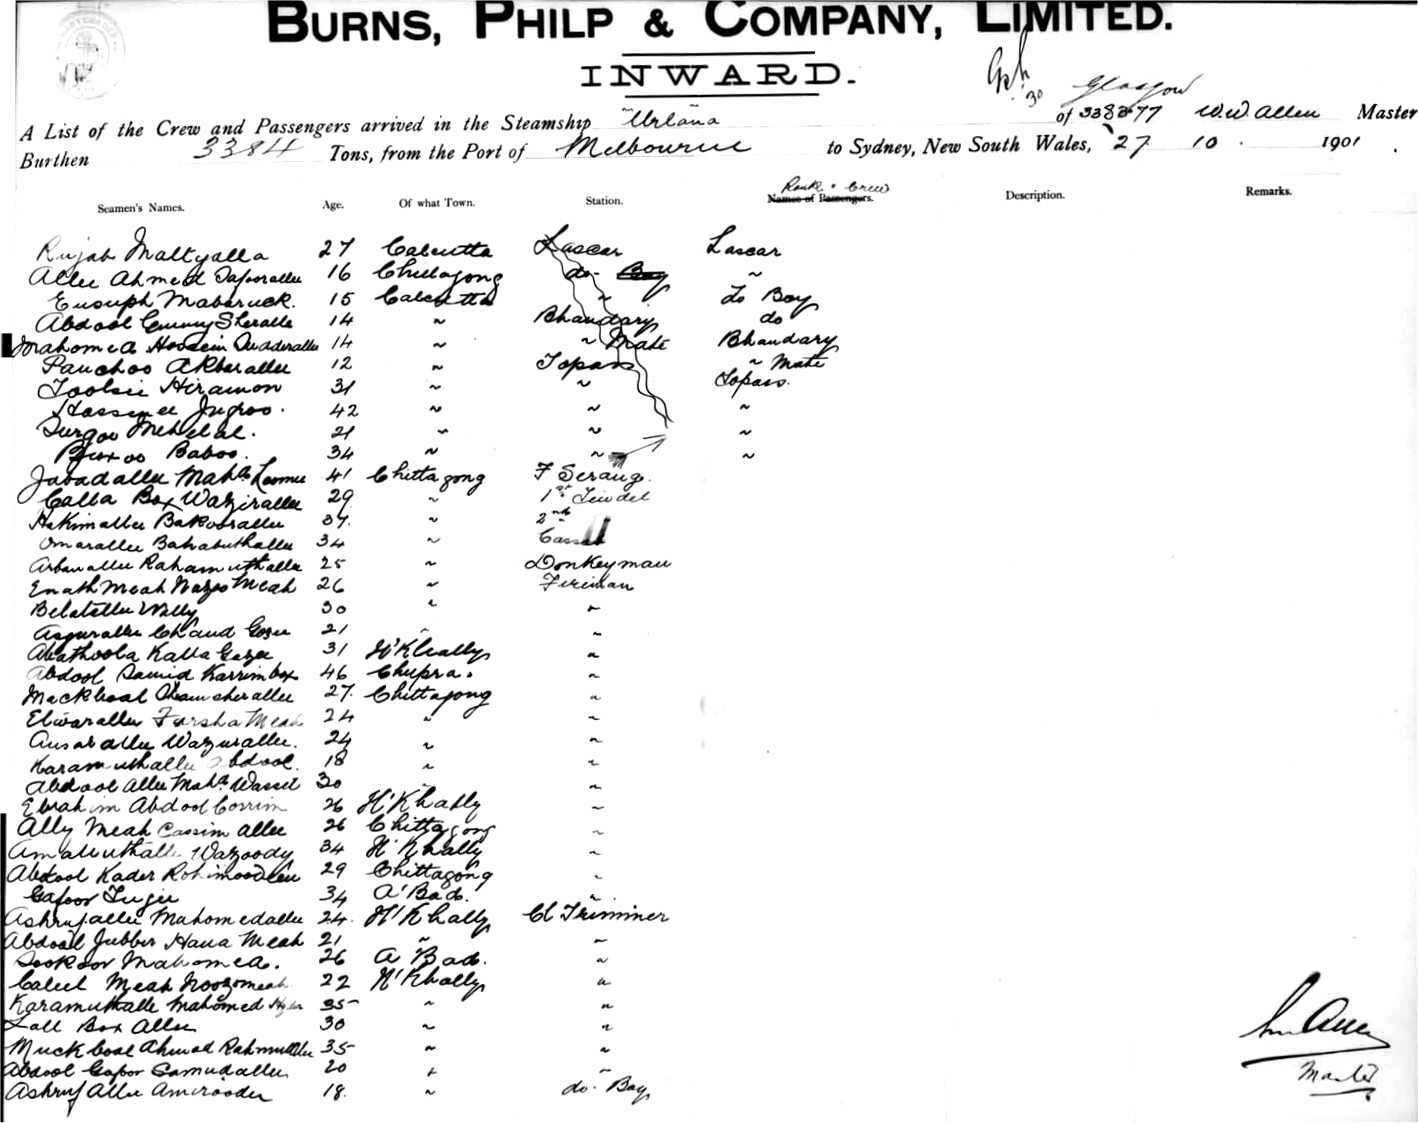 BURNS, PHILP & COMPANY, LIMITED.
INWARD.
30
Glasgow
A List of the Crew and Passengers arrived in the Steamship Urlana of W.W Allen Master
Burthen 3384 Tons, from the Port of Melbourne to Sydney, New South Wales, 27 10 1901.
Rank. Crew
Seamen's Names. Age. Of what Town. Station. Names of Passengers. Description. Remarks.
Rujab Maltyalla 27 Calcutta Lascar Lascar
Allee Ahmed Tafoorallee 16 Chittagong do Boy ~
Eusuph Mabaruck. 15 Calcutta ~ do Boy
Abdool Gunny Sheralle 14 ~ Bhandary do
Mahomed Hossein Quaderallee 14 ~ ~ Mate Bhandary
Panchoo Akberallee 12 ~ Topass ~ Mate
Toolsie Hiramon 31 ~ ~ Topass.
Hossinee Jugroo. 42 ~ ~ ~
Durgoo 21 ~ ~ ~
Buxoo Baboo. 34 ~ ~ ~
Jabadallee Mahd 41 Chittagong F Serang.
Calla Box Wazirallee 29 ~ 1st Tindel
Hakimallee Bakoorallee 37. ~ 2nd
Omarallee Bahabuthallee 34 ~ Cassab
Arbanallee Rahamuthallee 25 ~ Donkeyman
Enath Meah Nazoo Meah 26 ~ Fireman
Belatallee Wally 30 ~ ~
Asgurallee Chand Gazee 21 ~ ~
Abathoola Kalla Gazee 31 N'Khally ~
Abdool Samid Karrimbox 46 Chupra. ~
Mackbool Shamsherallee 27. Chittagong ~
Elwarallee Fursha Meah 24 ~ ~
Ansarallee Wazurallee. 24 ~ ~
Karamuthallee Abdool. 18 ~ ~
Abdool Allee Mahd Wassil 30 ~ ~
Ebrahim Abdool Corrim 26 N'Khally ~
Ally Meah Cassim allee 26 Chittagong ~
Amanuthalle Wazoody 34 N'Khally ~
Abdool Kader Rohimooddeen 29 Chittagong ~
Gafoor 34 A'Bad. ~
Ashrufallee Mahomedallee 24. N'Khally Cl Trimmer
Abdool Jubber Hana Meah 21 ~ ~
Sookoor Mahomed. 26 A Bad. ~
Caleel Meah Noozomeah 22 N'Khally ~
Karamuthalle Mahomed 35 ~ ~
Lall Box Allee 30 ~ ~
Muckbool Ahmed Rahmutallee 35 ~ ~
Abdool Gafoor Samudallee 20 ~ ~
Ashruf Allee Amerooder 18. ~ do. Boy
Allen
Master